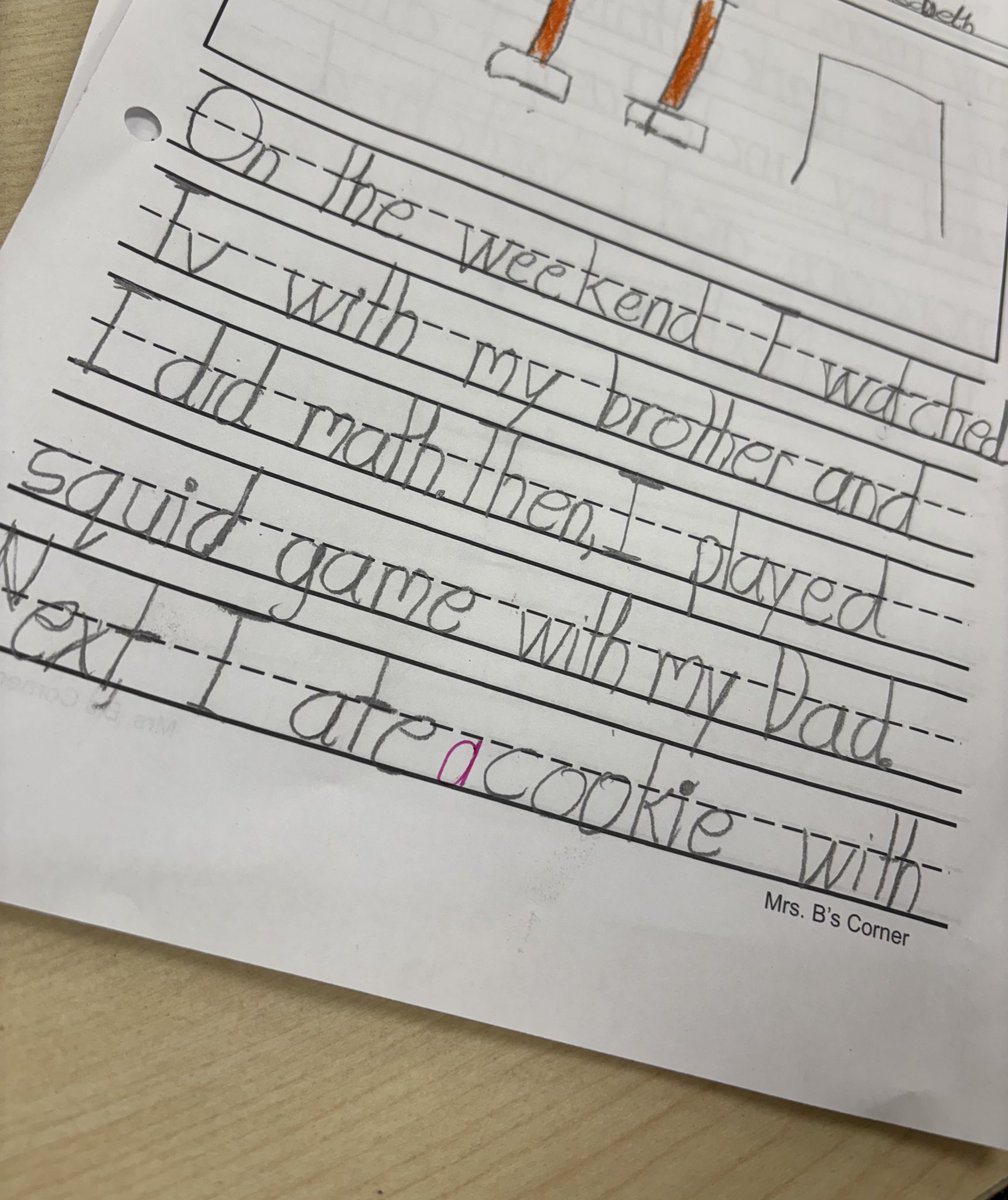 On the weekend I watched
Tv with my brother and
I did math. Then, I played
squid game with my Dad.
Next, I ate a cookie with
Mrs. B's Corner